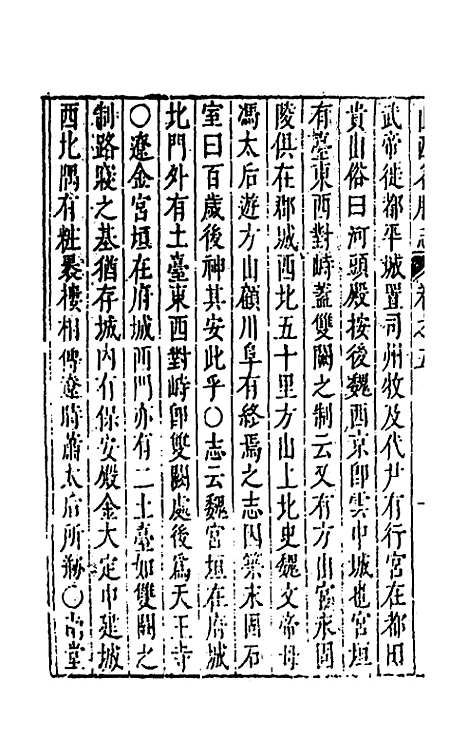 山西名勝志 卷之五
武帝徙都平城置司州牧及代尹有行宮在都田
貴山俗曰河頭殿按後魏西京即雲中城也宮垣
有臺東西對峙蓋雙闕之制云又有方山宮永固
陵俱在郡城西北五十里方山上北史魏文帝母
馮太后遊方山顧川阜有終焉之志因築永固石
室曰百歲後神其安此乎〇志云魏宮垣在府城
北門外有土臺東西對峙即雙闕處後爲天王寺
〇遼金宮垣在府城西門亦有二土臺如雙闕之
制路寢之基猶存城內有保安殿金大定中建城
西北隅有粧臺樓相傳遼時蕭太后所粧〇尚堂